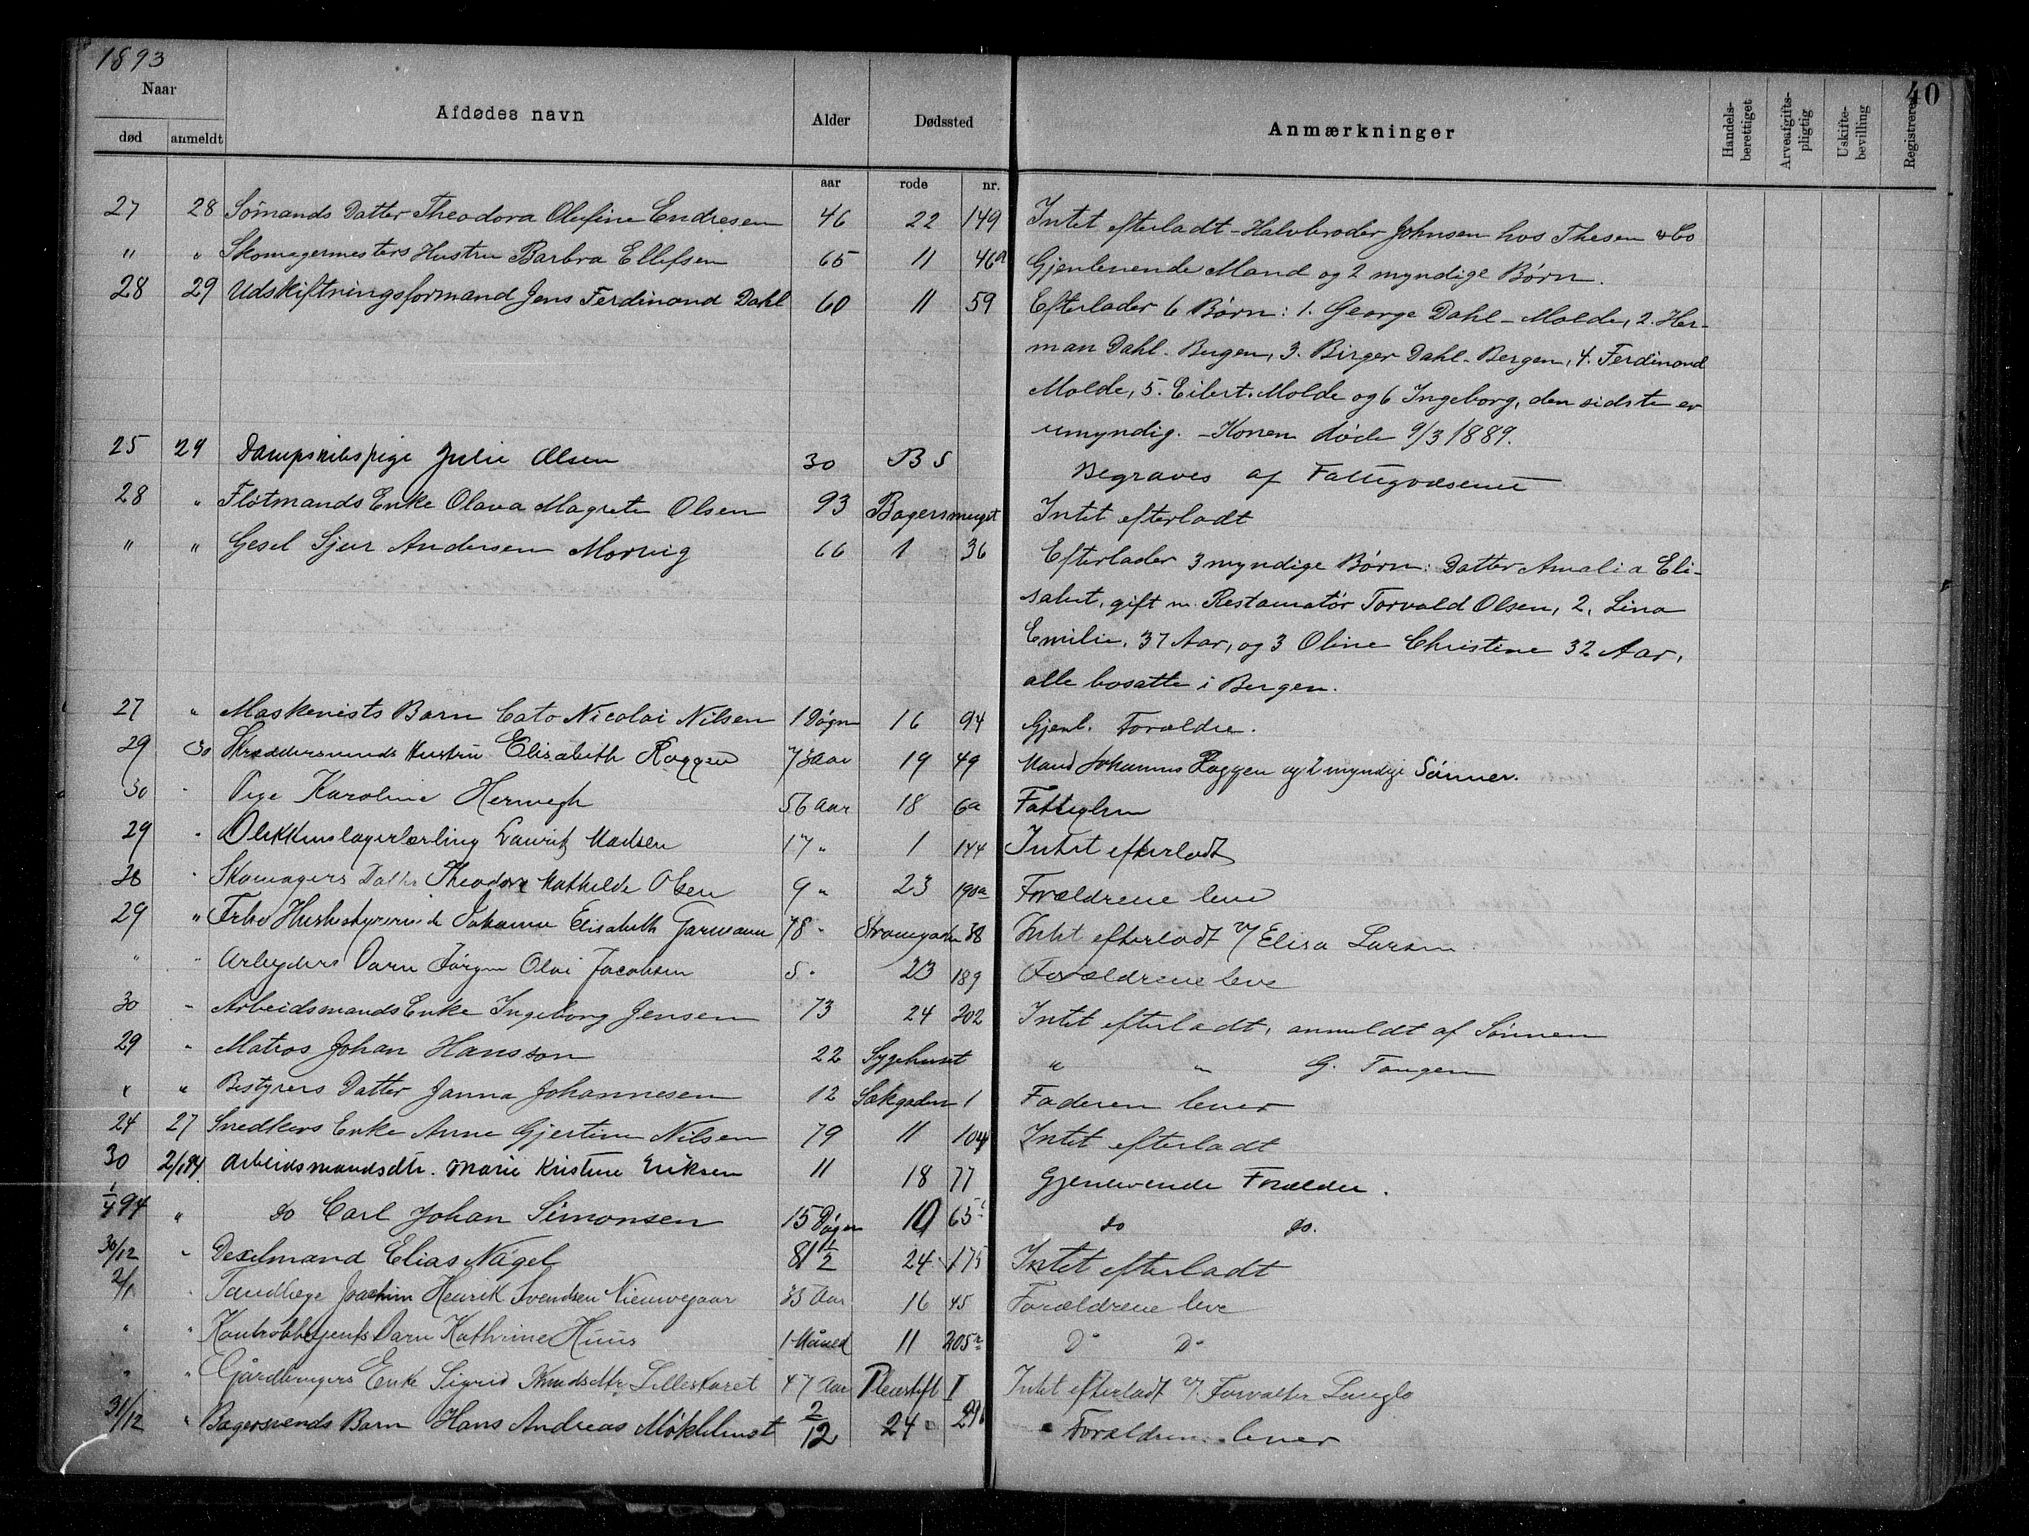 1893
40
Naar
Afdødes navn
Alder
Dødssted
Anmærkninger
Handels-berettiget
Arveafgifts-pligtig
Uskifte-bevilling
Registreret
død
anmeldt
aar
rode
nr.
27 28 Sømands Datter Theodora Olufine Endresen 46 22 149 Intet efterladt - Halvbroder Johnsen hos Thesen & Co
" " Skomagermesters Hustru Barbra Ellefsen 65 11 46a Gjenlevende Mand og 2 myndige Børn.
28 29 Udskiftningsformand Jens Ferdinand Dahl 60 11 59 Efterlader 6 Børn: 1. George Dahl - Molde, 2. Her-
man Dahl - Bergen, 3. Birger Dahl - Bergen, 4. Ferdinand
Molde, 5. Eilert. Molde og 6 Ingeborg, den sidste er
umyndig. - Konen døde 9/3 1889.
25 29 Dampskibspige Julie Olsen 30 B S Begraves af Fattigvæsenet
28 " Fløtmands Enke Olava Magrete Olsen 93 Intet efterladt
" " Gesel Sjur Andersen Morvig 66 1 36 Efterlader 3 myndige Børn: Datter Amalia Eli-
sabet, gift m. Restauratør Torvald Olsen, 2. Lina
Emilie, 37 Aar, og 3 Oline Christine 32 Aar,
alle bosatte i Bergen.
27 " Maskenists Barn Cato Nicolai Nilsen 1 Døgn 16 94 Gjenl. Forældre.
29 30 Skræddersvends Hustru Elisabeth Roggen 73 Aar 19 49 Mand Johannes Roggen og 2 myndige Sønner.
30 " Pige Karoline Herwegh 56 Aar 18 6a Fattiglem
29 " Blikkenslagerlærling Lauritz Madsen 17 " 1 144 Intet efterladt
28 " Skomagers Datter Theodora Mathilde Olsen 9 " 23 190a Forældrene leve
29 " Johanne Elisabeth Garmann 78 " Strangaden 38 Intet efterladt v/ Elisa Larsen
" " Arbeyders Barn Jørgen Olai Jacobsen 5 " 23 189 Forældrene leve
30 " Arbeidsmands Enke Ingeborg Jensen 73 24 202 Intet efterladt, anmeldt af Sønnen
29 " Matros Johan Hansson 22 Sygehuset " " G. Tangen
" " Bestyrers Datter Janna Johannesen 12 1 Faderen lever
24 27 Snedkers Enke Anne Gjertine Nilsen 79 11 104 Intet efterladt
30 2/1 94. Arbeidsmandsdtr. Marie Kristine Eriksen 11 18 77 Gjenlevende Forælder.
1/1 94 " do Carl Johan Simonsen 15 Døgn 10 65 do do.
30/12 " Elias Nagel 81 1/2 24 175 Intet efterladt
2/1 " Tandlæge Joachim Henrik Svendsen Nieuwejaar 35 Aar 16 45 Forældrene leve
" " Barn Kathrine Huus 1 Maaned 11 205 Do Do
" " Gårdbrugers Enke Sigrid Knudsdtr. Lilleskaret 47 Aar Pleiestift I Intet efterladt v/ Forvalter Langlo
31/12 " Bagersvends Barn Hans Andreas 2/12 24 Forældrene lever